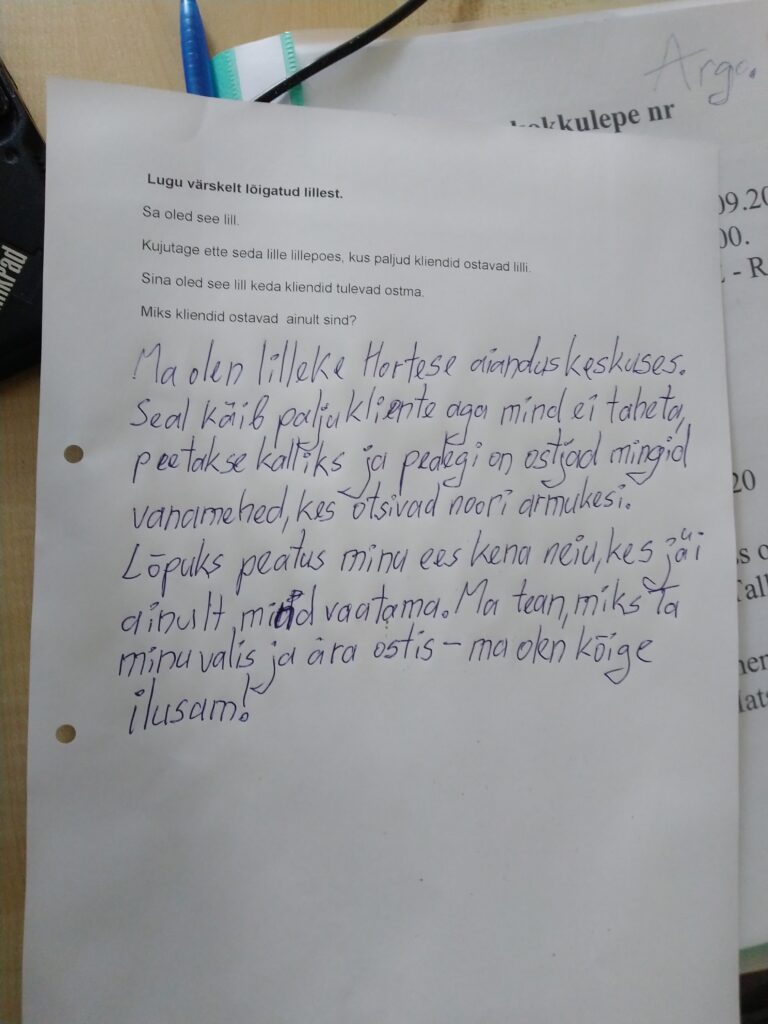 Argo.
kokkulepe nr
09.20
00.
- R
Lugu värskelt lõigatud lillest.
Sa oled see lill.
Kujutage ette seda lille lillepoes, kus paljud kliendid ostavad lilli.
Sina oled see lill keda kliendid tulevad ostma.
Miks kliendid ostavad ainult sind?
Ma olen lilleke Hortese aianduskeskuses.
Seal käib palju kliente aga mind ei taheta,
peetakse kalliks ja pealegi on ostjad mingid
vanamehed, kes otsivad noori armukesi.
Lõpuks peatus minu ees kena neiu, kes jäi
ainult mind vaatama. Ma tean, miks ta
minu valis ja ära ostis – ma olen kõige
ilusam!
20